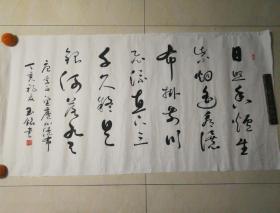 日照香爐生
紫烟遥看瀑
布掛前川
飛流直下三
千尺疑是
銀河落九天
唐李白望廬山瀑布
丁亥
書